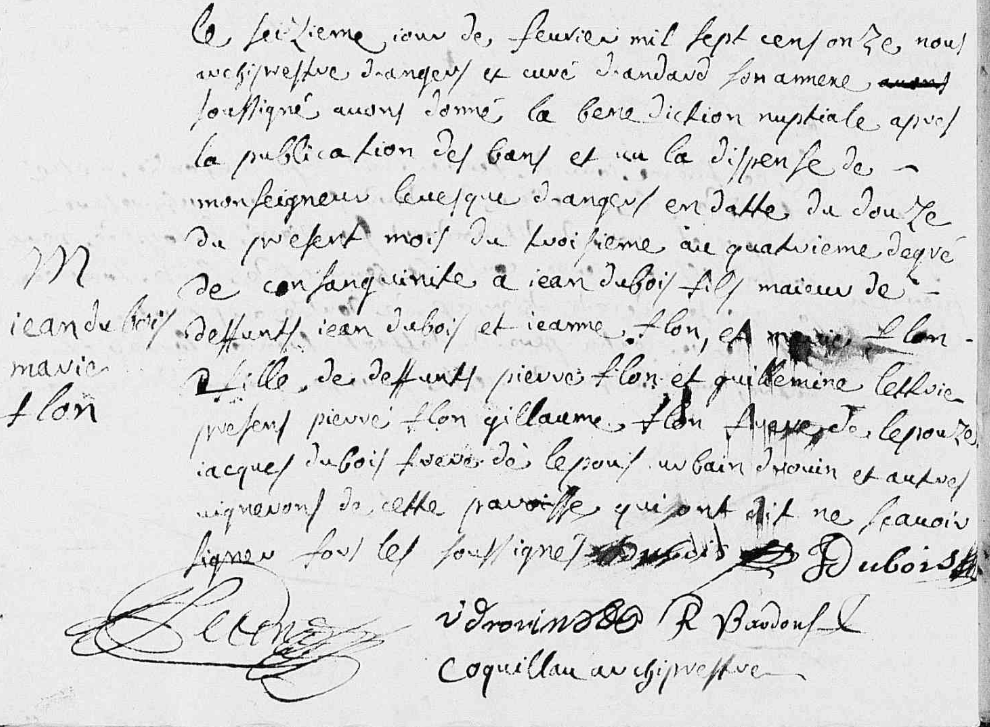 le seizieme iour de feurier mil sept cens onze nous
archiprestre d'angers et curé d'andard son annexe avons
soussigné auons donné la benediction nuptiale apres
la publication des bans et uu la dispense de
monseigneur leuesque d'angers en datte du douze
du present mois du troisieme au quatrieme degré
de consanguinite a iean dubois fils maieur de
M
iean dubois
marie
flon
deffunts iean dubois et ieanne flon, et marie flon
fille de deffunts pierre flon et guillemine lettrie
presens pierre flon gillaume flon frere de lespouze
iacques dubois frere de lespous urbain drouin et autres
uignerons de cette paroisse qui ont dit ne scauoir
signer fors les soussignés Dubois J Dubois
v drouin R Bardoul
Coquillau archiprestre